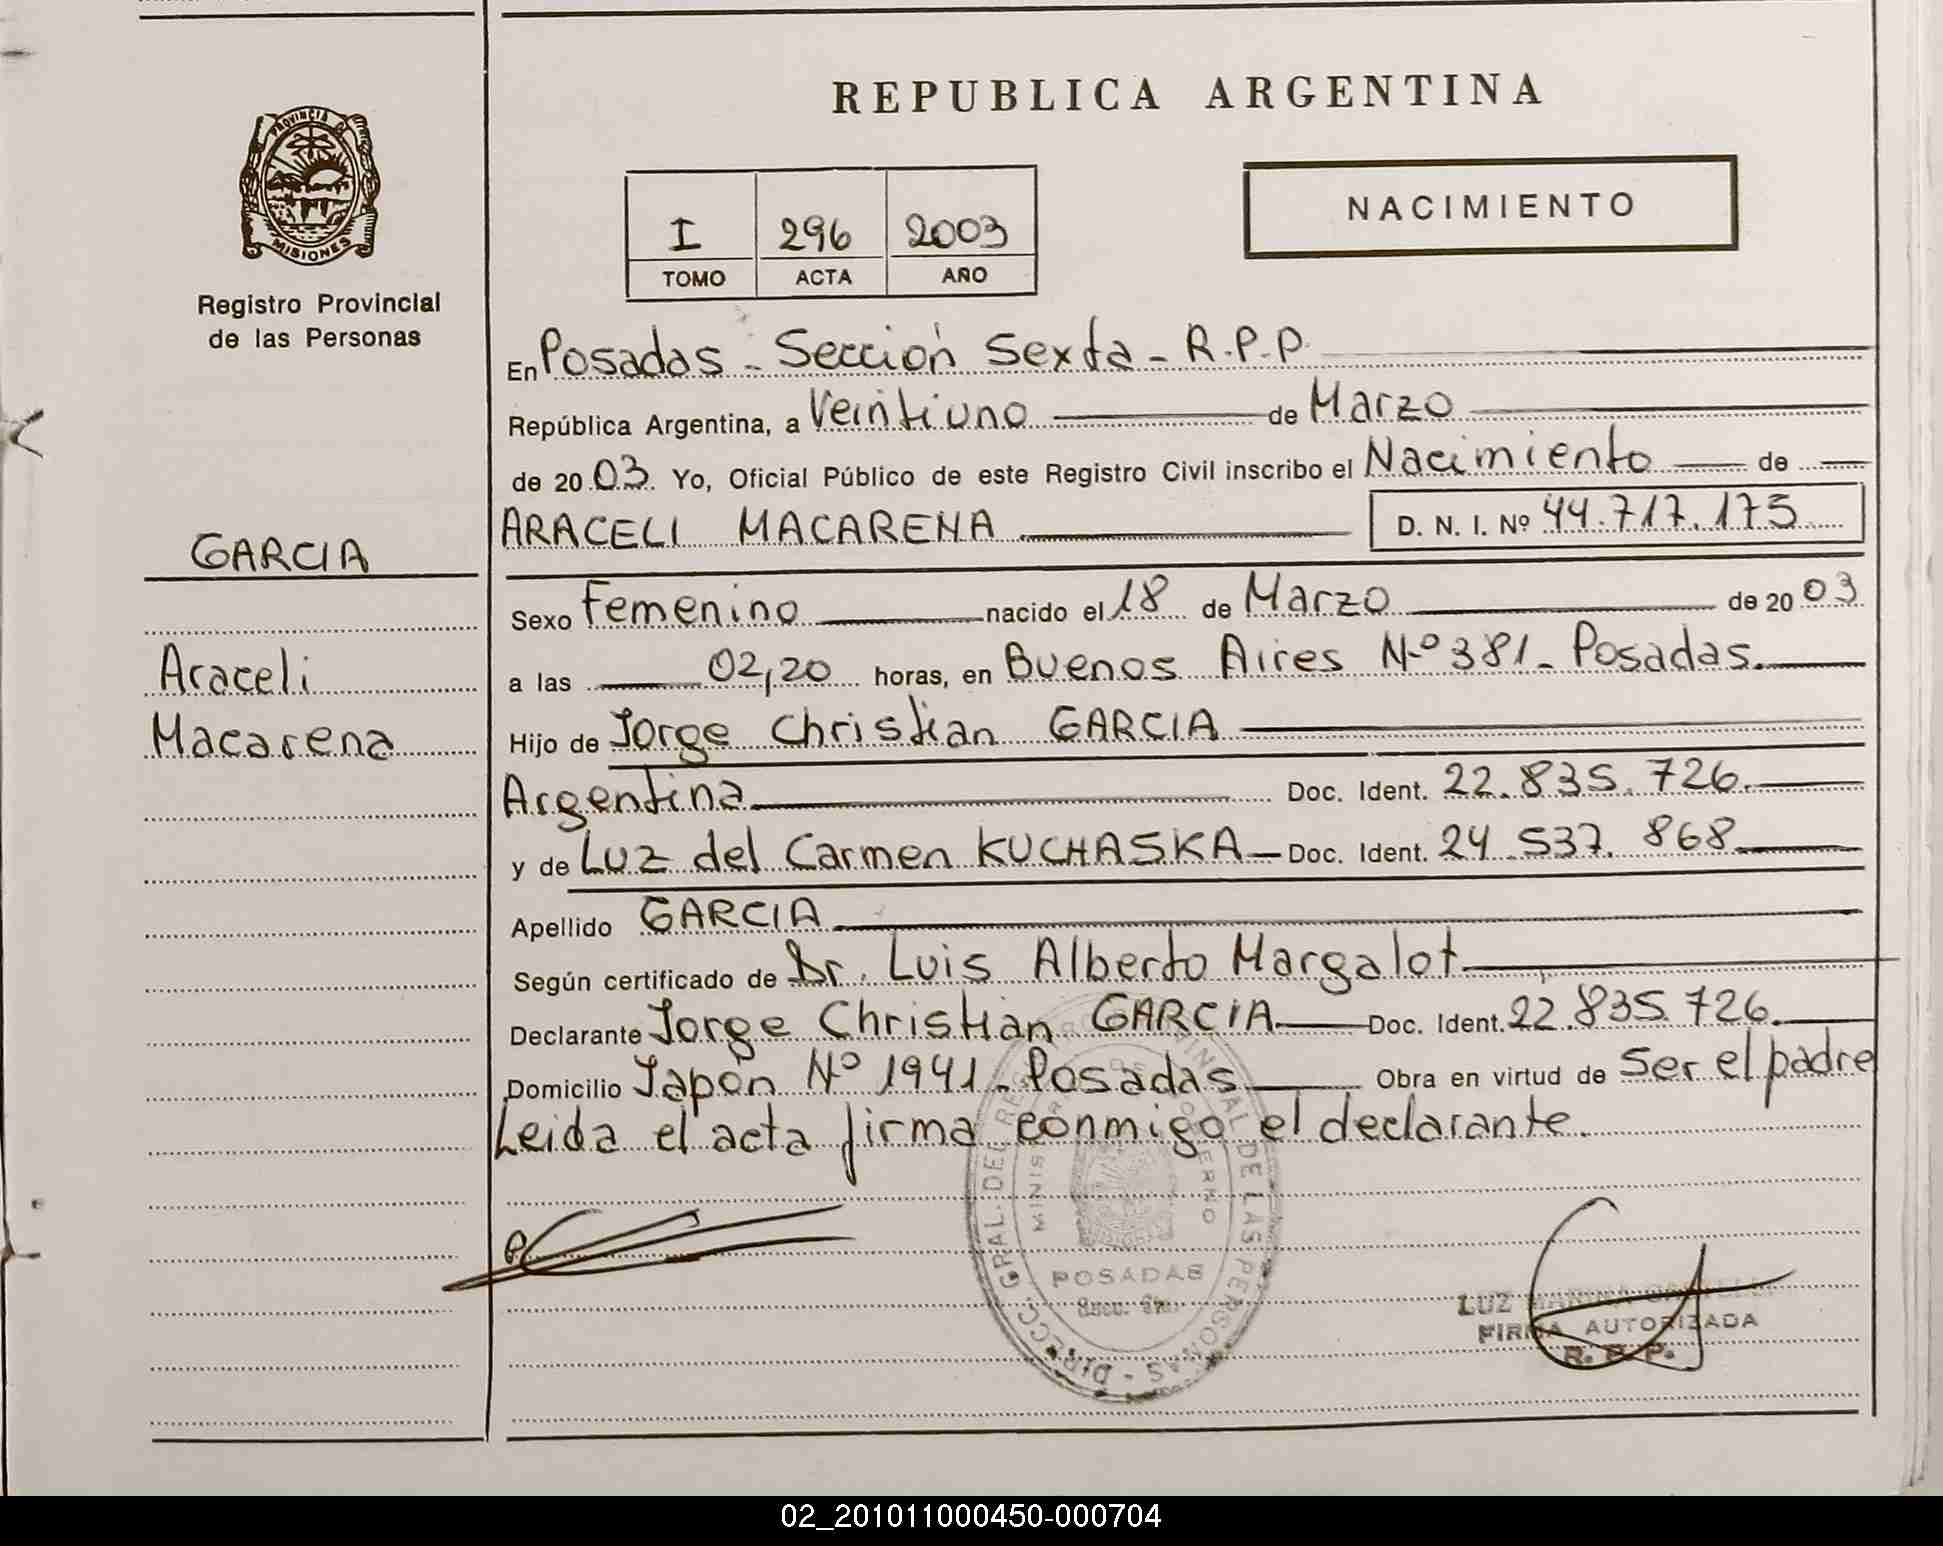 REPUBLICA ARGENTINA
PROVINCIA DE
MISIONES
Registro Provincial
de las Personas
I 296 2003
TOMO ACTA AÑO
NACIMIENTO
En Posadas - Sección Sexta - R.P.P.
República Argentina, a Veintiuno de Marzo
de 20 03. Yo, Oficial Público de este Registro Civil inscribo el Nacimiento de
GARCIA
ARACELI MACARENA D. N. I. Nº 44.717.175
Sexo Femenino nacido el 18 de Marzo de 20 03
Araceli
a las 02,20 horas, en Buenos Aires Nº 381 - Posadas.
Macarena
Hijo de Jorge Christian GARCIA
Argentina Doc. Ident. 22.835.726.
y de Luz del Carmen KUCHASKA - Doc. Ident. 24.537.868
Apellido GARCIA
Según certificado de Dr. Luis Alberto Margalot
Declarante Jorge Christian GARCIA Doc. Ident. 22.835.726.
Domicilio Japón Nº 1941 - Posadas Obra en virtud de Ser el padre
Leida el acta firma conmigo el declarante.
DIRECC. GRAL. DEL DE LAS PERSONAS
POSADAS
LUZ
FIRMA AUTORIZADA
R. P. P.
02_201011000450-000704